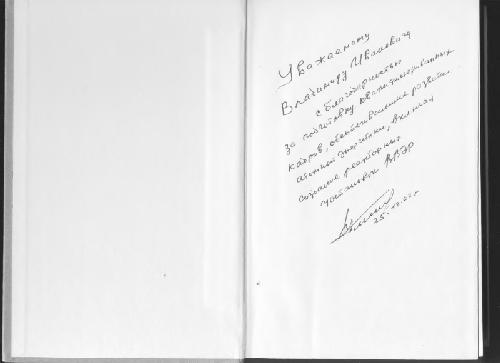 Уважаемому
Владимиру Ивановичу
с благодарностью
за подготовку квалифицированных
кадров, обеспечивших развитие
атомной энергетики, включая
создание реакторных
установок ВВЭР
25.